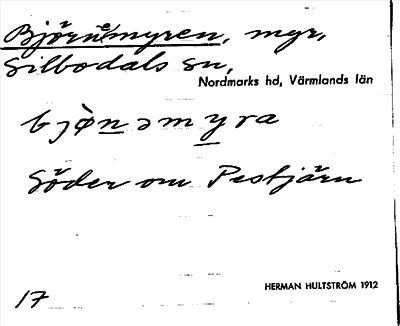 Björnemyren, myr,
Silbodals sn,
Nordmarks hd, Värmlands län
bjònəmyra
Söder om Pestjärn
HERMAN HULTSTRÖM 1912
17